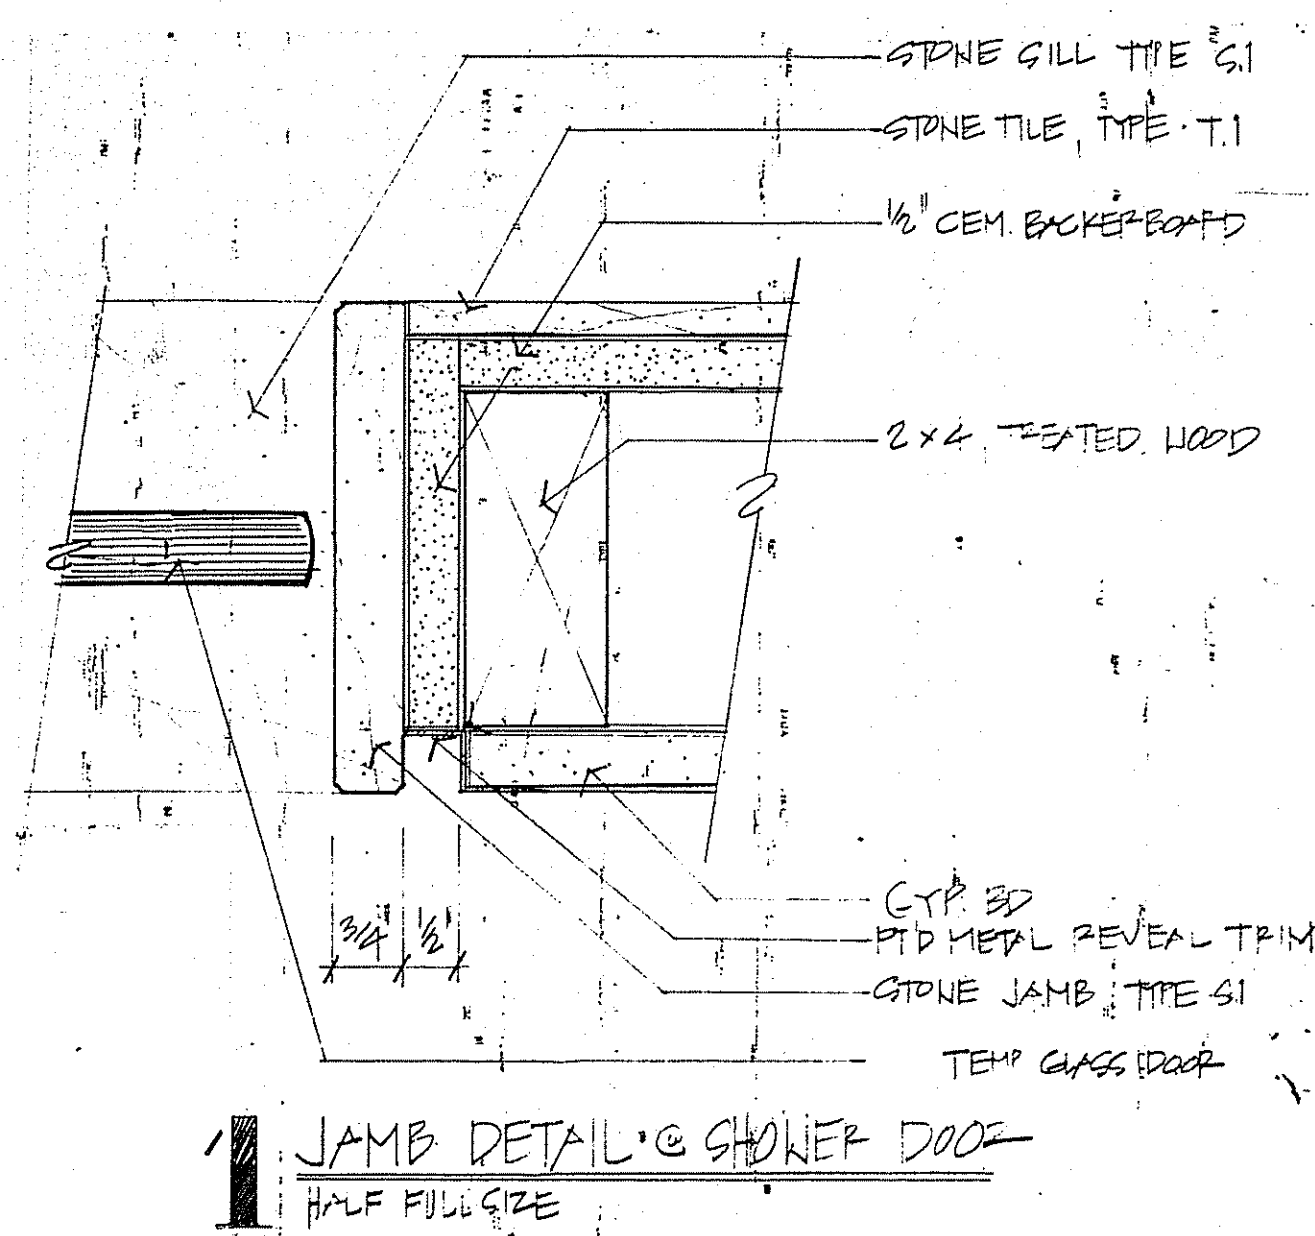 STONE SILL TYPE S.1
STONE TILE, TYPE T.1
1/2" CEM. BACKERBOARD
2 x 4 TREATED WOOD
GYP. BD
PTD METAL REVEAL TRIM
STONE JAMB TYPE S.1
TEMP GLASS DOOR
3/4" 1/2"
1 JAMB DETAIL @ SHOWER DOOR
HALF FULL SIZE